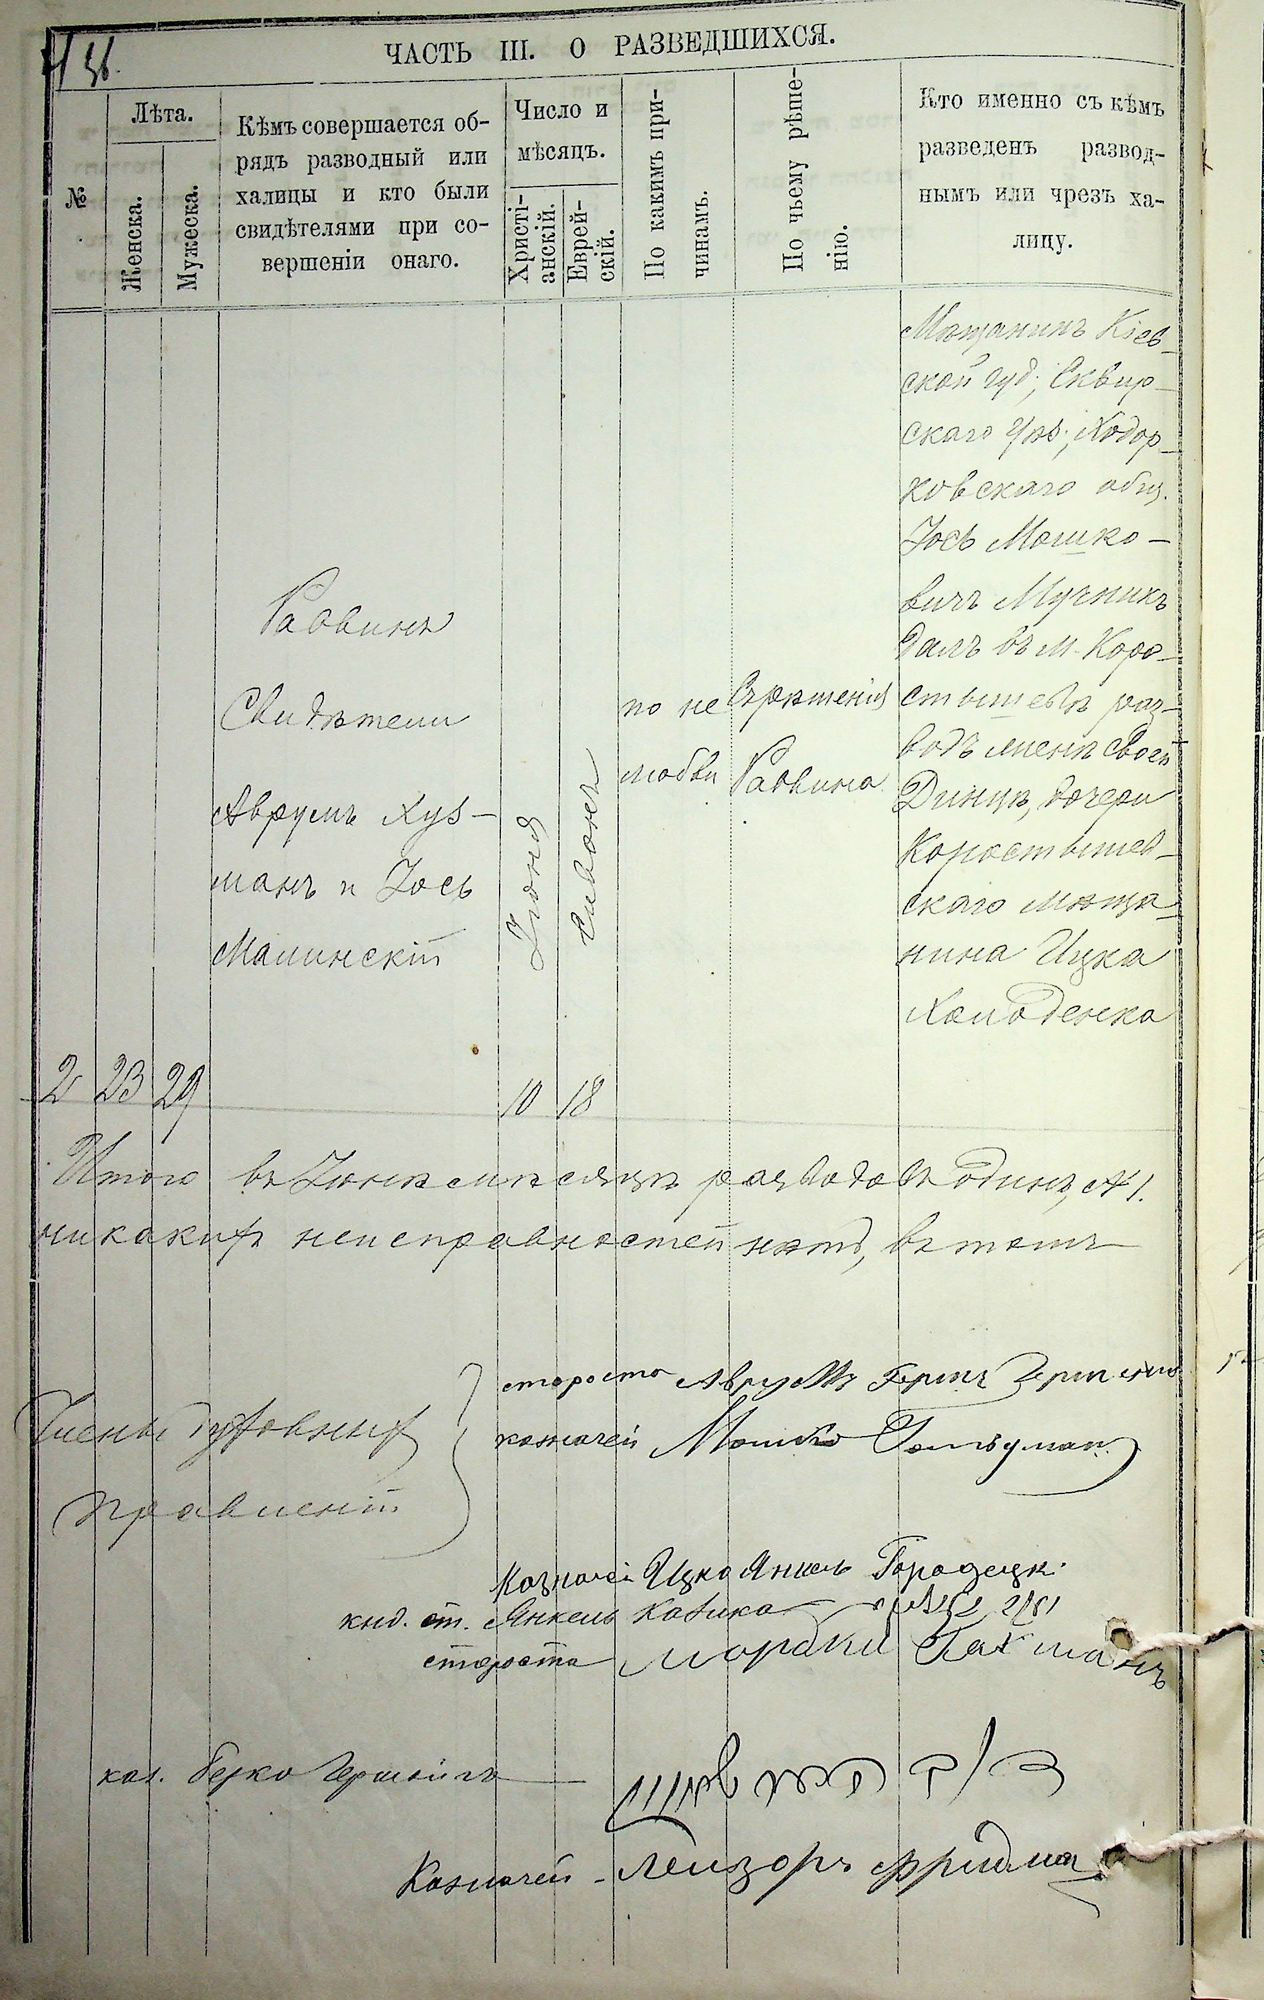 ЧАСТЬ III. О РАЗВЕДШИХСЯ.
№
Лѣта.
Женска.
Мужеска.
Кѣмъ совершается об-
рядъ разводный или
халицы и кто были
свидѣтелями при со-
вершеніи онаго.
Число и
мѣсяцъ.
Христі-
анскій.
Еврей-
скій.
По какимъ при-
чинамъ.
По чьему рѣше-
нію.
Кто именно съ кѣмъ
разведенъ развод-
нымъ или чрезъ ха-
лицу.
2
23
29
Раввинъ
Свидѣтели
Аврумъ Хуз-
манъ и Іось
Малинскій
Іюня
10
Сивонъ
18
по не
любви
Съ рѣшенія
Раввина
Мѣщанинъ Кіев-
ской губ., Сквир-
скаго уѣз., Ходор-
ковскаго общ.
Іось Мошко-
вичъ Мучникъ
далъ въ м. Коро-
стышевѣ раз-
водъ женѣ своей
Динѣ, дочери
Коростышев-
скаго мѣща-
нина Ицка
Холоденка
Итого въ Іюнѣ мѣсяцѣ разводовъ одинъ, № 1.
никакихъ неисправностей нѣтъ, въ томъ
Члены духовныхъ
правленій
староста Аврумъ Герш
казначей Мошко Гольдман
Казначей Ицко Янкель Городецк.
кнд. ст. Янкель
староста Мордко Гахманъ
каз. Берко
Казначей - Лейзоръ Фридма